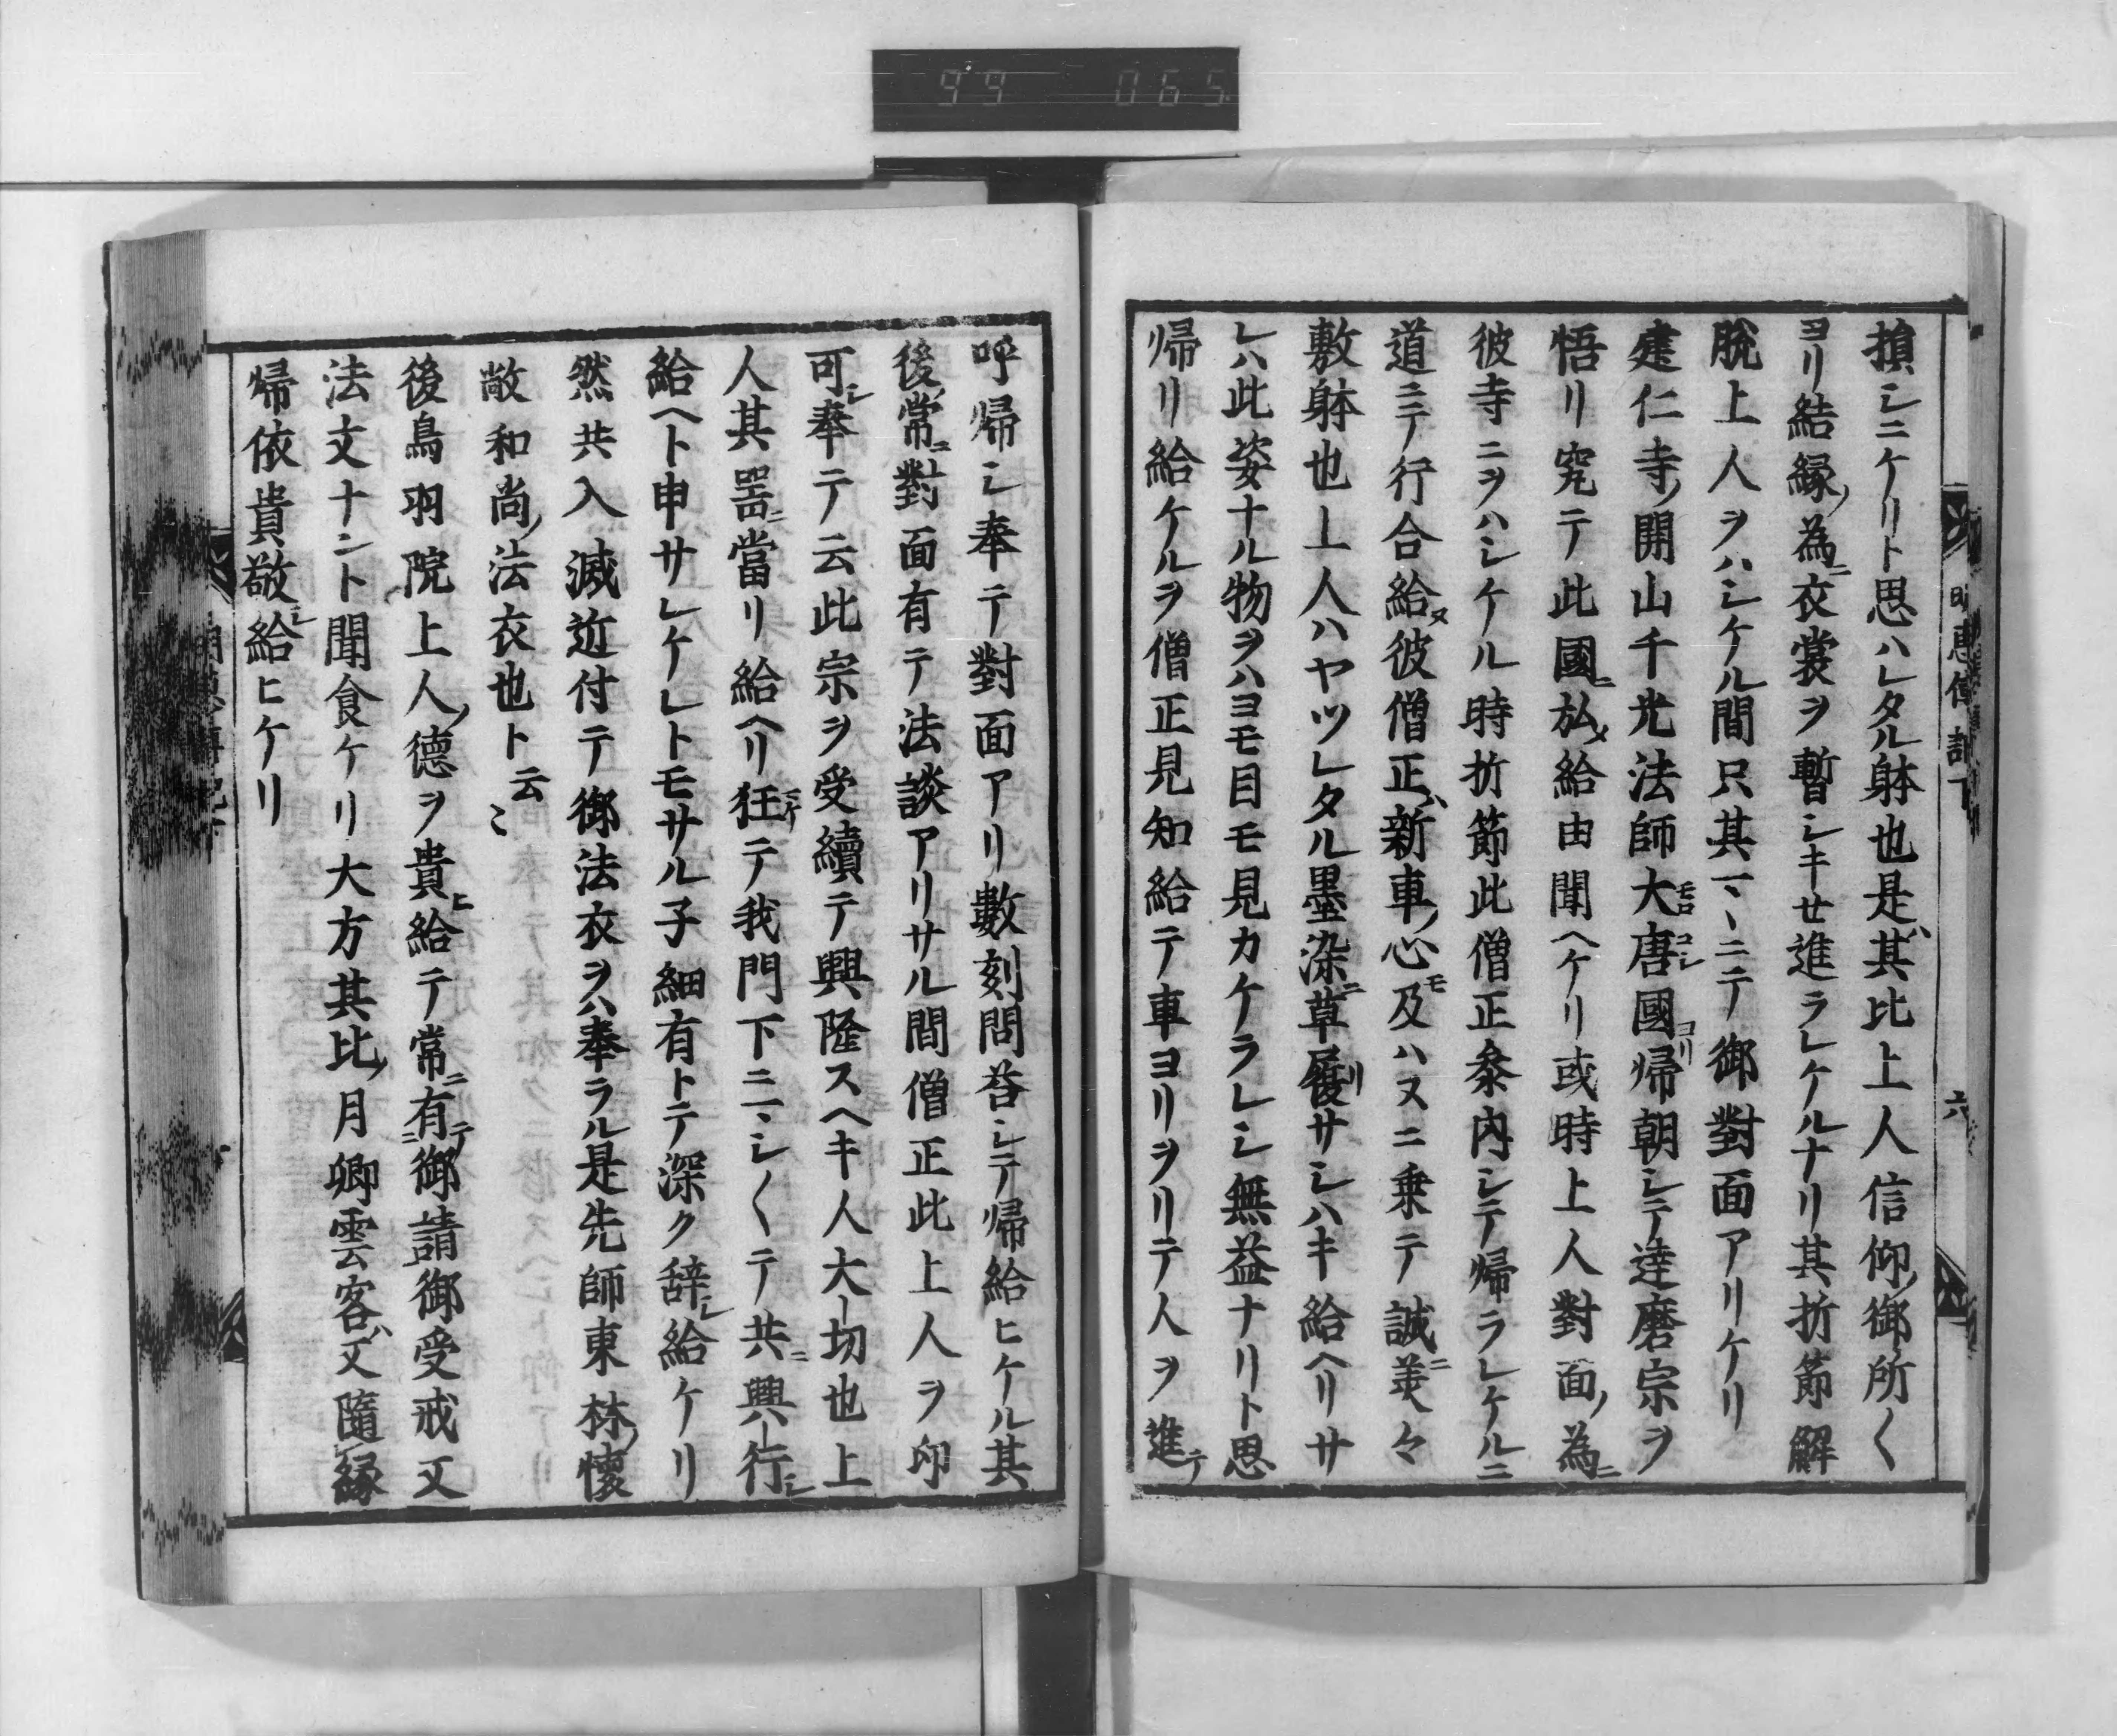 99 065
明恵傳記下
六
損シニケリト思ハレタル躰也是ハ其比上人信仰ノ御所〱
ヨリ結縁ノ為ニ衣裳ヲ暫シキせ進ラレケルナリ其折節解
脱上人ヲハシケル間只其一ヽニテ御對面アリケリ
建仁寺ノ開山千光法師大唐國ヨリ帰朝シテ達磨宗ヲ
悟リ究テ此國ニ弘メ給由聞ヘケリ或時上人對面ノ為ニ
彼寺ニヲハシケル時折節此僧正参内シテ帰ラレケルニ
道ニテ行合給ヌ彼僧正ハ新車ノ心モ及ハヌニ乗テ誠ニ美々
敷躰也上人ハヤツレタル墨染ニ草履サシハキ給ヘリサ
レハ此姿ナル物ヲハヨモ目モ見カケラレシ無益ナリト思
帰リ給ケルヲ僧正見知給テ車ヨリヲリテ人ヲ進テ
呼帰シ奉テ對面アリ數刻問荅シテ帰給ヒケル其
後ノ常ニ對面有テ法談アリサル間僧正此上人ヲ印
可シ奉テ云此宗ヲ受續テ興隆スヘキ人大切也上
人其噐ニ當リ給ヘリ狂テ我門下ニ一シ〱テ共ニ興行シ
給ヘト申サレケレトモサル子細有トテ深ク辞シ給ケリ
然共入滅近付テ御法衣ヲハ奉ラル是先師東林ノ懐
敞和尚ノ法衣也ト云〻
後鳥羽院上人ノ德ヲ貴ヒ給テ常ニ有テ御請御受戒又
法文ナント聞食ケリ大方其比ノ月卿雲客ハ又隨縁
帰依貴敬シ給ヒケリ